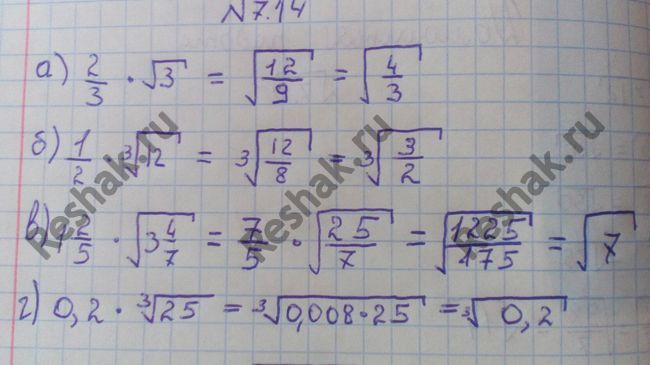 N7.14
а) 2/3 · √3 = √(12/9) = √(4/3)
б) 1/2 · ³√12 = ³√(12/8) = ³√(3/2)
в) 1 2/5 · √(3 4/7) = 7/5 · √(25/7) = √(1225/175) = √7
г) 0,2 · ³√25 = ³√(0,008·25) = ³√0,2
Reshak.ru
Reshak.ru
Reshak.ru